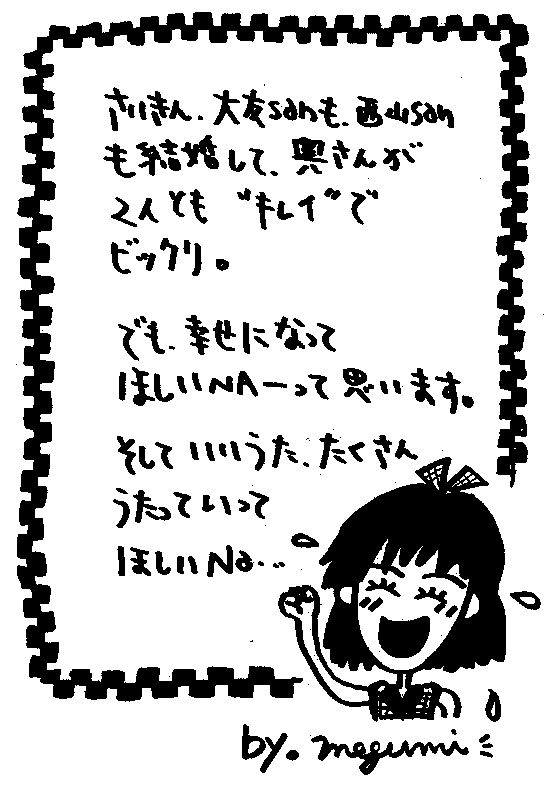 さいきん、大友sanも、西山san
も結婚して、奥さんが
2人とも“キレイ”で
ビックリ。
でも、幸せになって
ほしいNAーって思います。
そしていいうた、たくさん
うたっていって
ほしいNa…
by. megumi